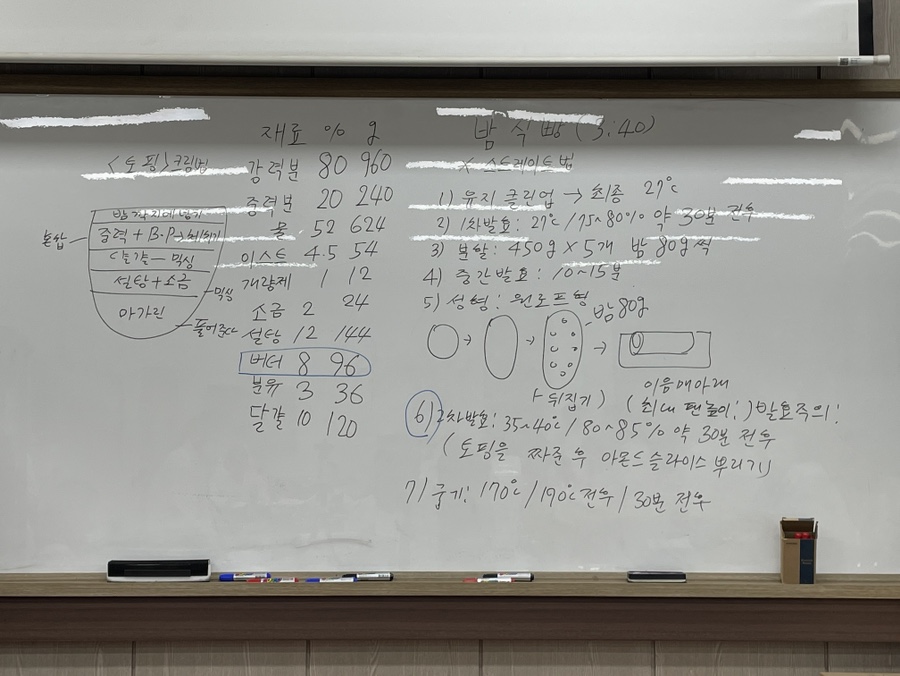 밤 식빵 (3:40)
재료 % g
강력분 80 960
중력분 20 240
물 52 624
이스트 4.5 54
개량제 1 12
소금 2 24
설탕 12 144
버터 8 96
분유 3 36
달걀 10 120
<토핑> 크림법
중력 + B.P → 체치기
달걀 - 믹싱
설탕 + 소금
마가린
믹싱
풀어준다
※ 스트레이트법
1) 유지 클린업 → 최종 27℃
2) 1차발효: 27℃ / 75~80% 약 30분 전후
3) 분할: 450g × 5개 밤 80g씩
4) 중간발효: 10~15분
5) 성형: 원로프형
밤 80g
뒤집기)
이음매아래
(최대 팬높이!) 발효주의!
6) 2차발효: 35~40℃ / 80~85% 약 30분 전후
(토핑을 짜준 후 아몬드슬라이스 뿌리기)
7) 굽기: 170℃ / 190℃ 전후 / 30분 전후